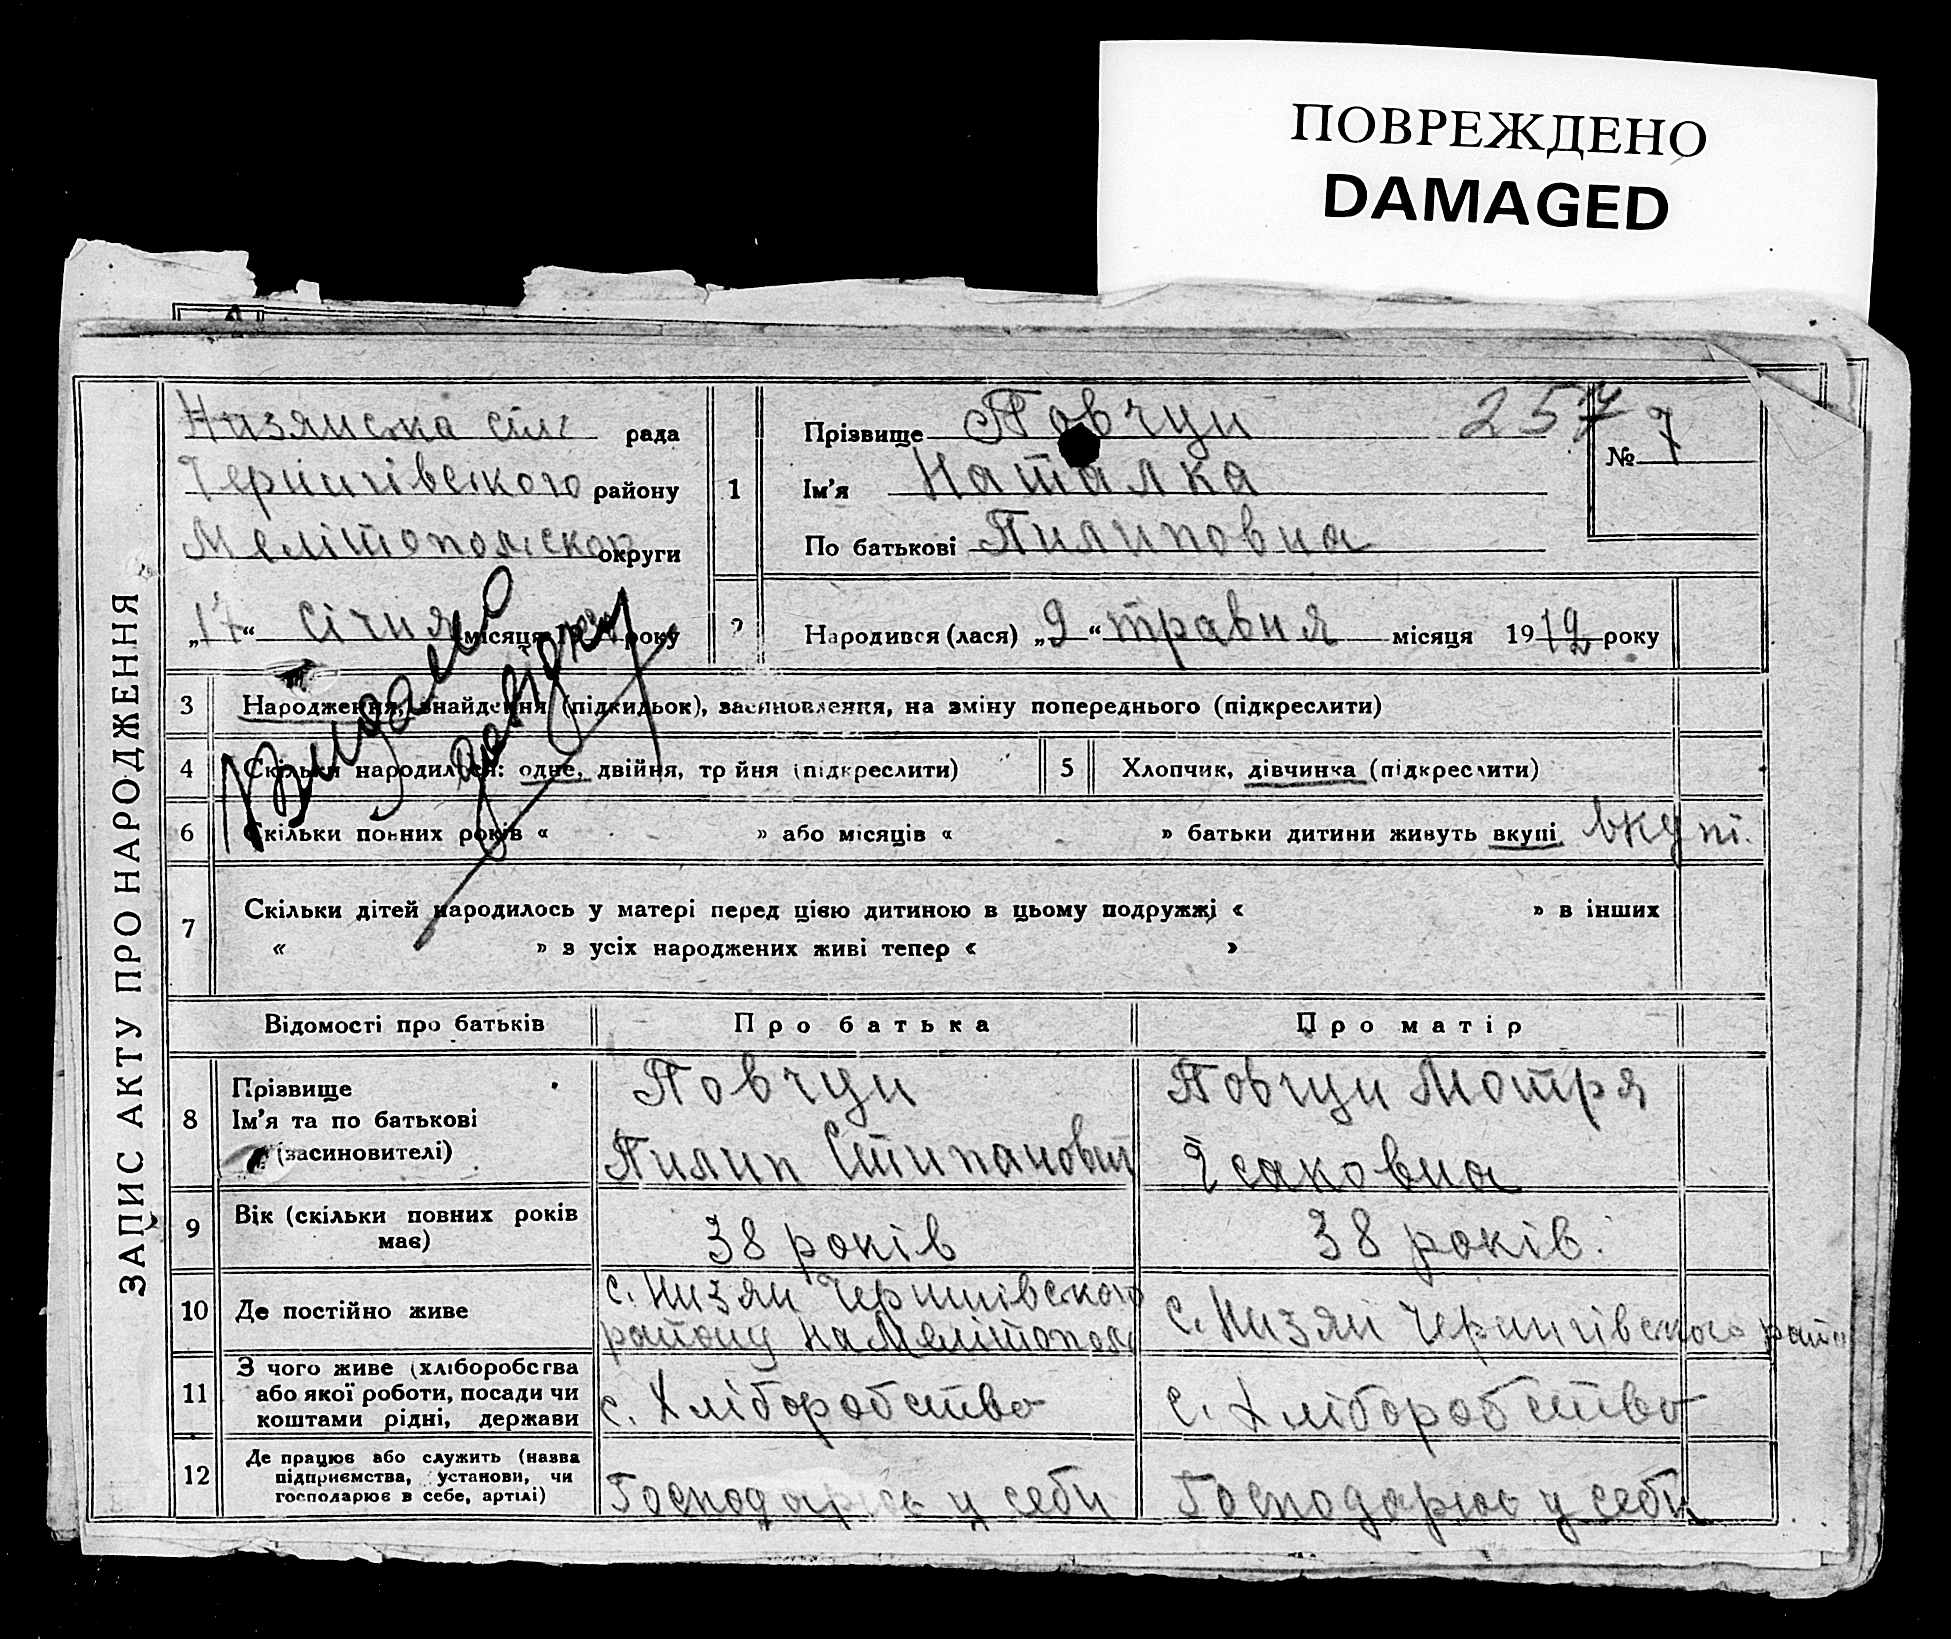 ПОВРЕЖДЕНО
DAMAGED
ЗАПИС АКТУ ПРО НАРОДЖЕННЯ
Низянська сіль рада
Чернигівського району
Мелітопольскої округи
„17“ січня місяця року
1
Прізвище Повчун
257
№ 7
Ім'я Наталка
По батькові Пилиповна
2 Народився (лася) „9“ травня місяця 1912 року
Видано довідку
3 Народження, знайдення (підкидьок), засиновлення, на зміну попереднього (підкреслити)
4 Скільки народилося: одне, двійня, тройня (підкреслити)
5 Хлопчик, дівчинка (підкреслити)
6 Скільки повних років « » або місяців « » батьки дитини живуть вкупі вкупі.
7 Скільки дітей народилось у матері перед цією дитиною в цьому подружжі « » в інших
« » з усіх народжених живі тепер « »
Відомості про батьків Про батька Про матір
8 Прізвище
Ім'я та по батькові
(засиновителі)
Повчун
Пилип Стипанович
Повчун Мотря
Ісаковна
9 Вік (скільки повних років
має)
38 років
38 років.
10 Де постійно живе
с. Низян Чернигівского
району на Мелітопол
с. Низян Чернигівского райо
11 З чого живе (хліборобства
або якої роботи, посади чи
коштами рідні, держави
с. Хліборобство
с. Хліборобство
12 Де працює або служить (назва
підприємства, установи, чи
господарює в себе, артілі)
Господарює у себи
Господарює у себи